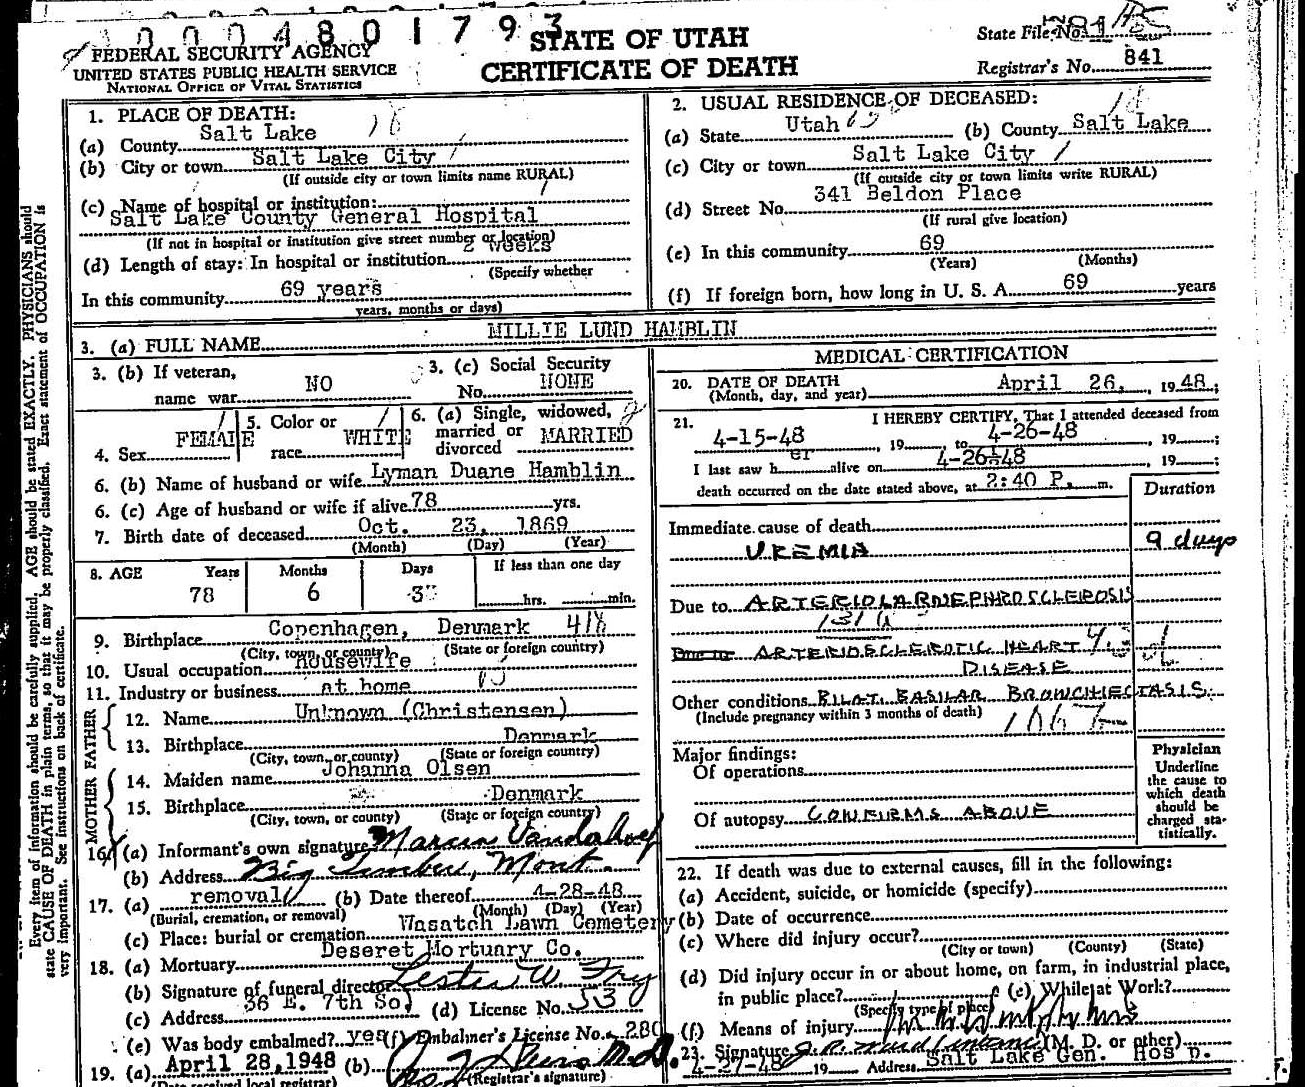 0004801793
FEDERAL SECURITY AGENCY
UNITED STATES PUBLIC HEALTH SERVICE
NATIONAL OFFICE OF VITAL STATISTICS
STATE OF UTAH
CERTIFICATE OF DEATH
State File No.
Registrar's No. 841
Every item of information should be carefully supplied. AGE should be stated EXACTLY. PHYSICIANS should
state CAUSE OF DEATH in plain terms, so that it may be properly classified. Exact statement of OCCUPATION is
very important. See instructions on back of certificate.
1. PLACE OF DEATH:
(a) County Salt Lake
(b) City or town Salt Lake City
(If outside city or town limits name RURAL)
(c) Name of hospital or institution:
Salt Lake County General Hospital
(If not in hospital or institution give street number or location)
(d) Length of stay: In hospital or institution 2 weeks
(Specify whether
In this community 69 years
years, months or days)
2. USUAL RESIDENCE OF DECEASED:
(a) State Utah (b) County Salt Lake
(c) City or town Salt Lake City
(If outside city or town limits write RURAL)
(d) Street No. 341 Beldon Place
(If rural give location)
(e) In this community 69
(Years) (Months)
(f) If foreign born, how long in U. S. A. 69 years
3. (a) FULL NAME MILLIE LUND HAMBLIN
3. (b) If veteran, name war NO
3. (c) Social Security No. NONE
4. Sex FEMALE
5. Color or race WHITE
6. (a) Single, widowed, married or divorced MARRIED
6. (b) Name of husband or wife Lyman Duane Hamblin
6. (c) Age of husband or wife if alive 78 yrs.
7. Birth date of deceased Oct. 23, 1869
(Month) (Day) (Year)
8. AGE Years Months Days If less than one day
78 6 3 hrs. min.
9. Birthplace Copenhagen, Denmark 418
(City, town, or county) (State or foreign country)
10. Usual occupation housewife
11. Industry or business at home
FATHER
12. Name Unknown (Christensen)
13. Birthplace Denmark
(City, town, or county) (State or foreign country)
MOTHER
14. Maiden name Johanna Olsen
15. Birthplace Denmark
(City, town, or county) (State or foreign country)
16. (a) Informant's own signature
(b) Address Big Timber, Mont.
17. (a) removal (b) Date thereof 4-28-48
(Burial, cremation, or removal) (Month) (Day) (Year)
(c) Place: burial or cremation Wasatch Lawn Cemetery
18. (a) Mortuary Deseret Mortuary Co.
(b) Signature of funeral director Lester W Fry
(c) Address 36 E. 7th So. (d) License No. 530
(e) Was body embalmed? yes (f) Embalmer's License No. 280
19. (a) April 28, 1948 (b)
(Date received local registrar) (Registrar's signature)
MEDICAL CERTIFICATION
20. DATE OF DEATH April 26, 1948;
(Month, day, and year)
21. I HEREBY CERTIFY, That I attended deceased from
4-15-48, 19 to 4-26-48, 19 ;
I last saw her alive on 4-26-48, 19 ;
death occurred on the date stated above, at 2:40 P. m.
Duration
Immediate cause of death
UREMIA 9 days
Due to ARTERIOLARNEPHROSCLEROSIS
131a
Due to ARTERIOSCLEROTIC HEART
DISEASE
Other conditions BILAT. BASILAR BRONCHIECTASIS
(Include pregnancy within 3 months of death)
Major findings:
Of operations
Of autopsy CONFIRMS ABOVE
Physician
Underline
the cause to
which death
should be
charged statistically.
22. If death was due to external causes, fill in the following:
(a) Accident, suicide, or homicide (specify)
(b) Date of occurrence
(c) Where did injury occur?
(City or town) (County) (State)
(d) Did injury occur in or about home, on farm, in industrial place,
in public place? (e) While at Work?
(Specify type of place)
(f) Means of injury
23. Signature (M. D. or other)
4-27-48 19 Address Salt Lake Gen. Hosp.